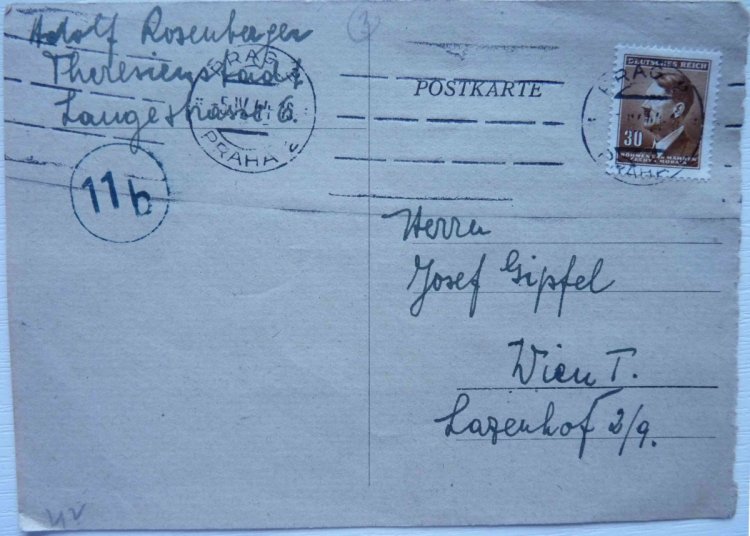 Adolf Rosenberger
Theresienstadt
Langestrasse 6.
PRAG
PRAHA
11b
3
POSTKARTE
DEUTSCHES REICH
30
BÖHMEN UND MÄHREN
ČECHY A MORAVA
PRAG
PRAHA
Herrn
Josef Gipfel
Wien I.
Lazenhof 2/9.